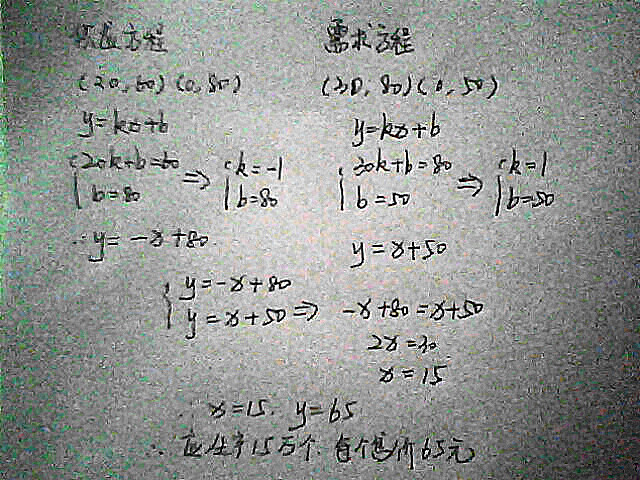 供应方程 需求方程
(20, 60) (0, 80) (30, 80) (0, 50)
y=kx+b y=kx+b
{20k+b=60 ⇒ {k=-1 {30k+b=80 ⇒ {k=1
b=80 b=80 b=50 b=50
∴ y=-x+80 y=x+50
{y=-x+80
y=x+50 ⇒ -x+80=x+50
2x=30
x=15
∴ x=15. y=65
∴ 应生产15万个. 每个售价65元